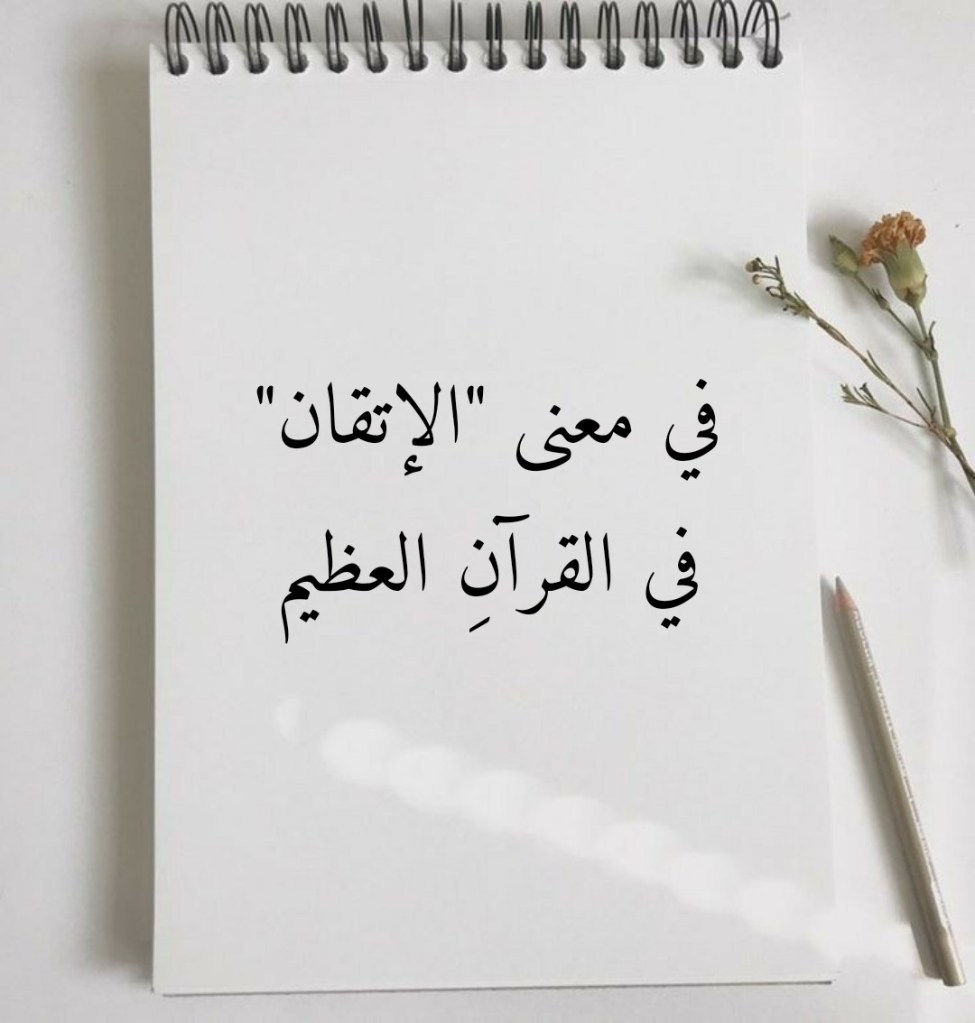 في معنى "الإتقان"
في القرآنِ العظيم